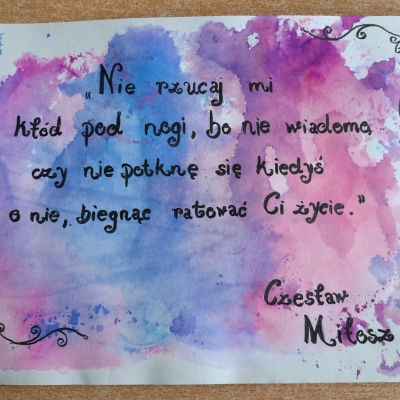 „Nie rzucaj mi
kłód pod nogi, bo nie wiadomo,
czy nie potknę się kiedyś
o nie, biegnąc ratować Ci życie."
Czesław
Miłosz